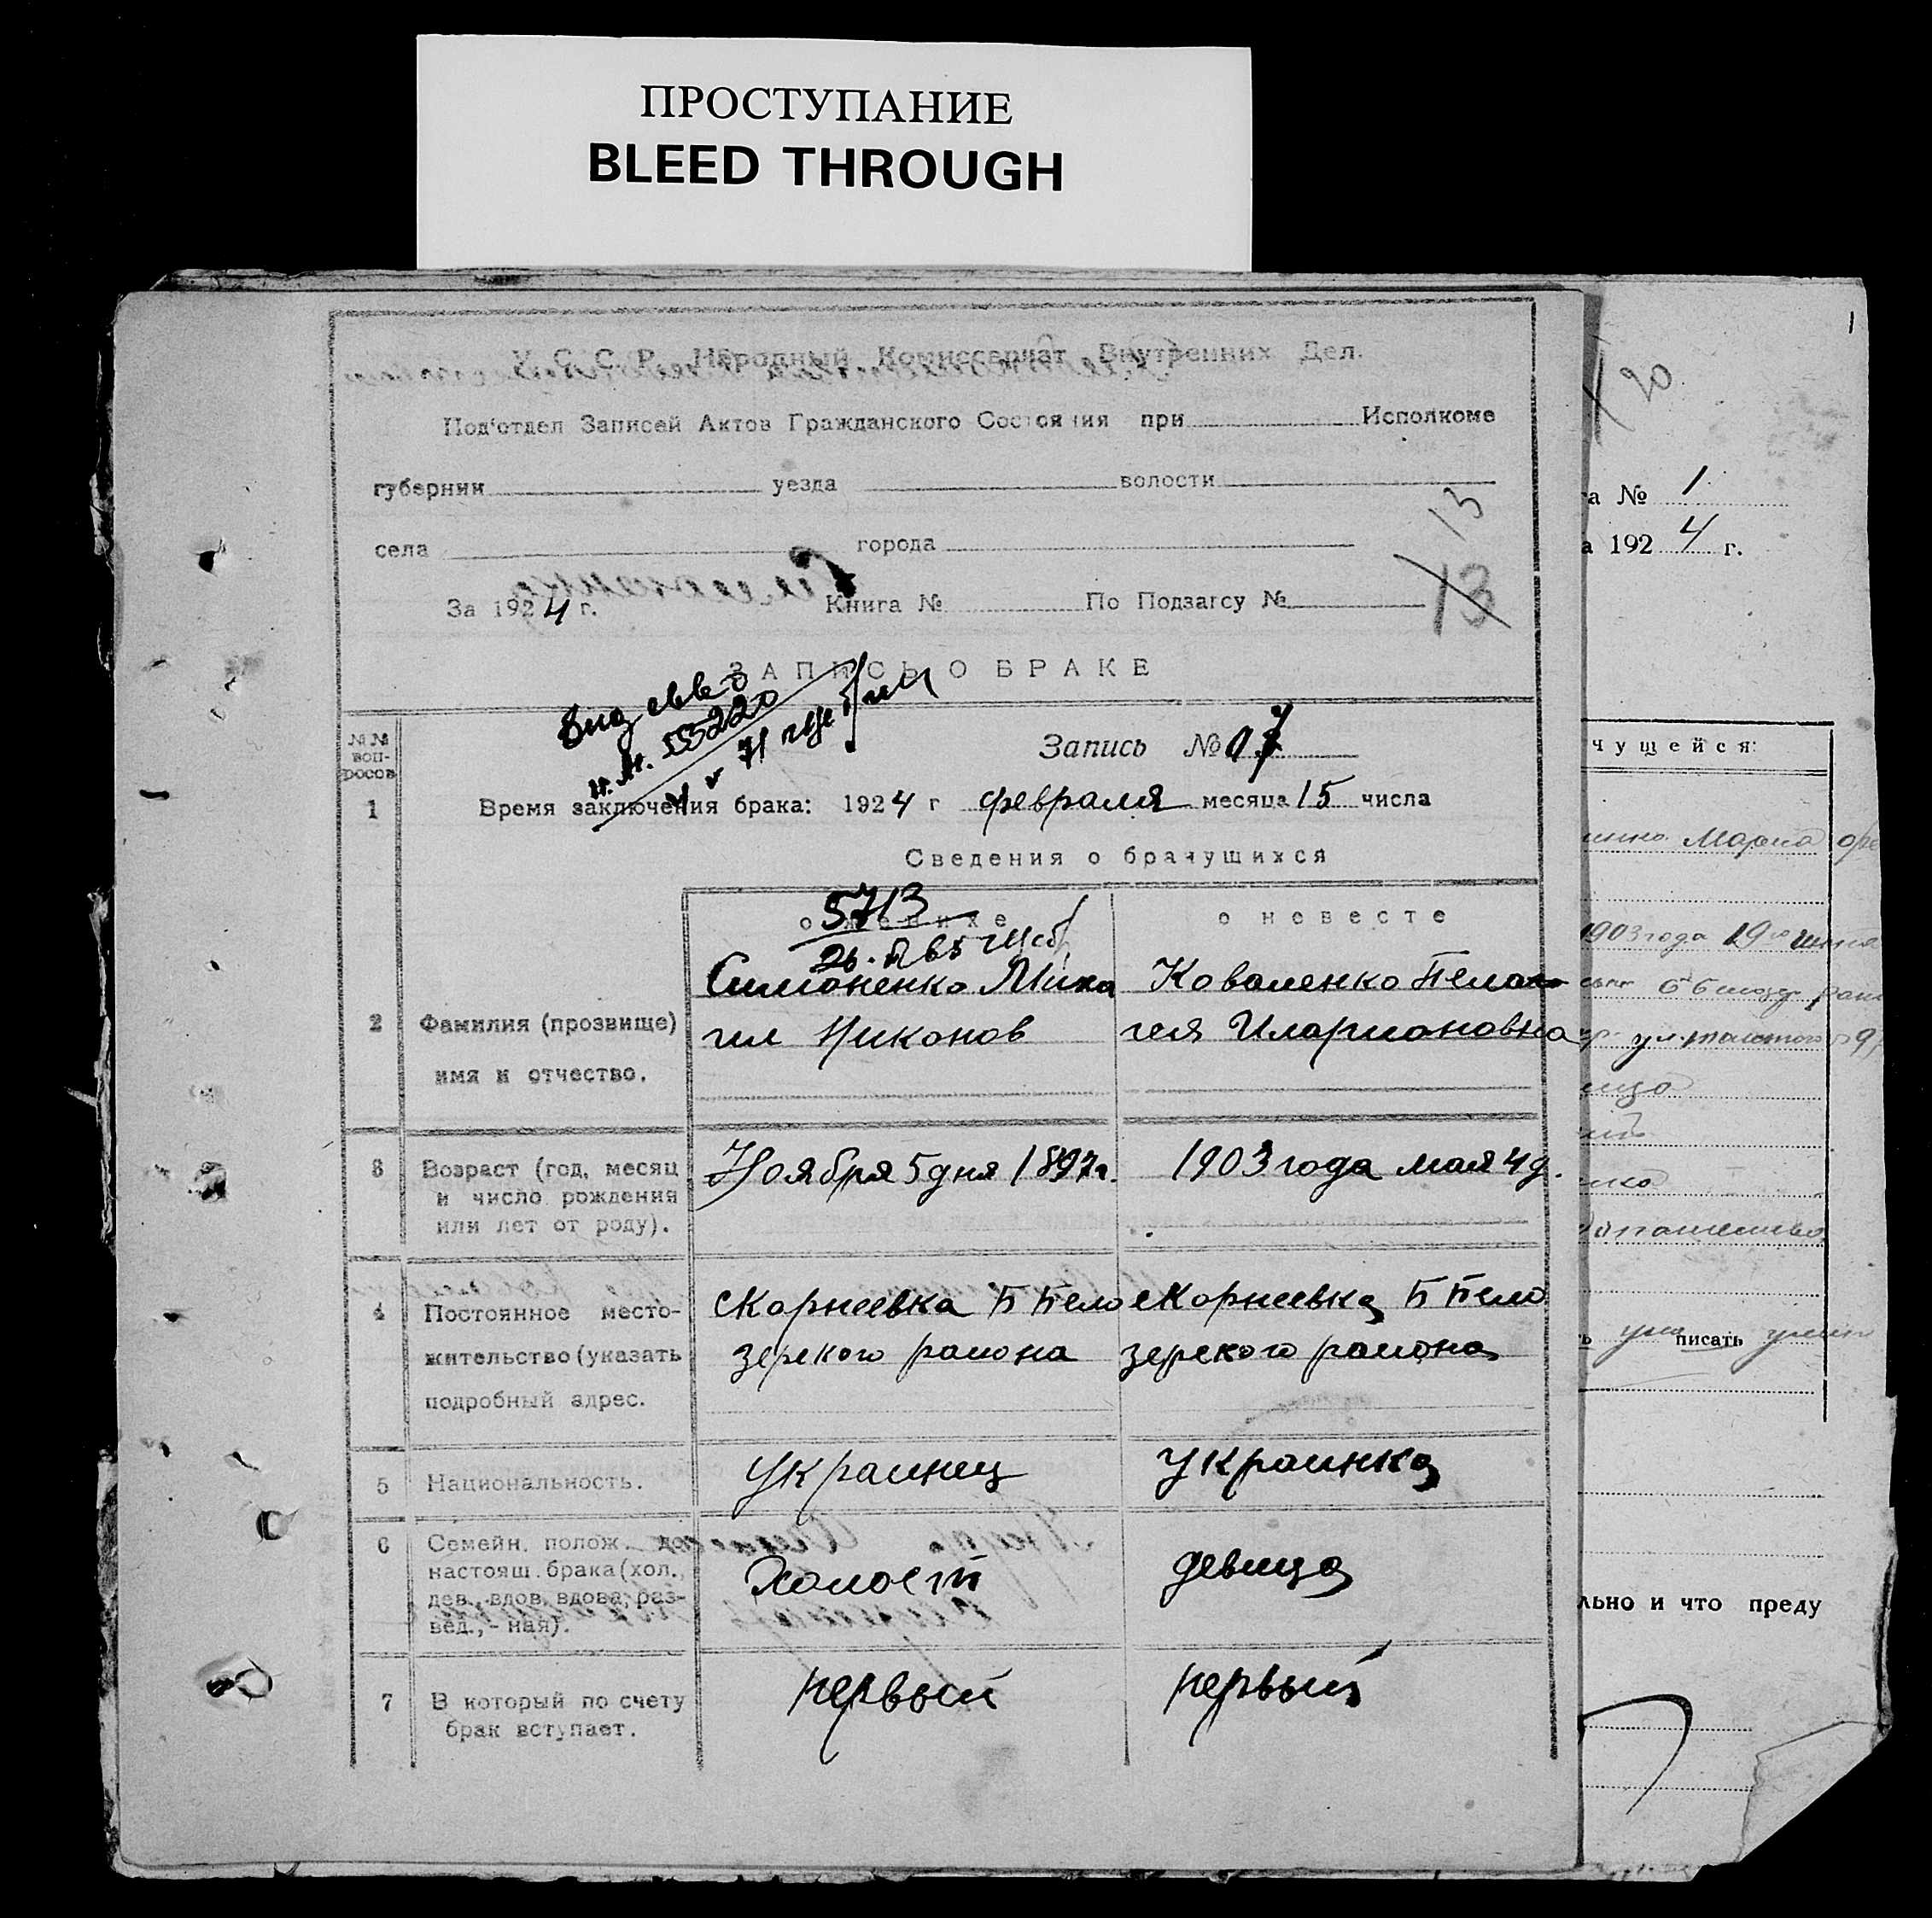 ПРОСТУПАНИЕ
BLEED THROUGH
У. С. С. Р. Народный Комиссариат Внутренних Дел.
Под'отдел Записей Актов Гражданского Состояния при Исполкоме
губернии уезда волости
13
села города
За 1924 г. Книга № По Подзагсу №
13
ЗАПИСЬ О БРАКЕ
№№ воп-росов
Запись № 07
1 Время заключения брака: 1924 г февраля месяца 15 числа
Сведения о брачущихся
о женихе о невесте
5713
2 Фамилия (прозвище)
имя и отчество.
Симоненко Миха
гил Никонов
Коваленко Пелаг
гея Иларионовна
3 Возраст (год, месяц
и число рождения
или лет от роду).
Ноября 5 дня 1897г.
1903 года мая 4 д.
4 Постоянное место-
жительство (указать
подробный адрес.
с Корнеевка Б Бело
зерского района
с Корнеевка Б Бело
зерского района
5 Национальность.
Украинец
Украинка
6 Семейн. полож. до
настоящ. брака (хол.,
дев., вдов, вдова, раз-
вед., - ная).
Холост
девица
7 В который по счету
брак вступает.
первый
первый
1
20
а № 1
а 1924 г.
чущейся:
Мария
1903 года 19
ул.
писать
льно и что преду